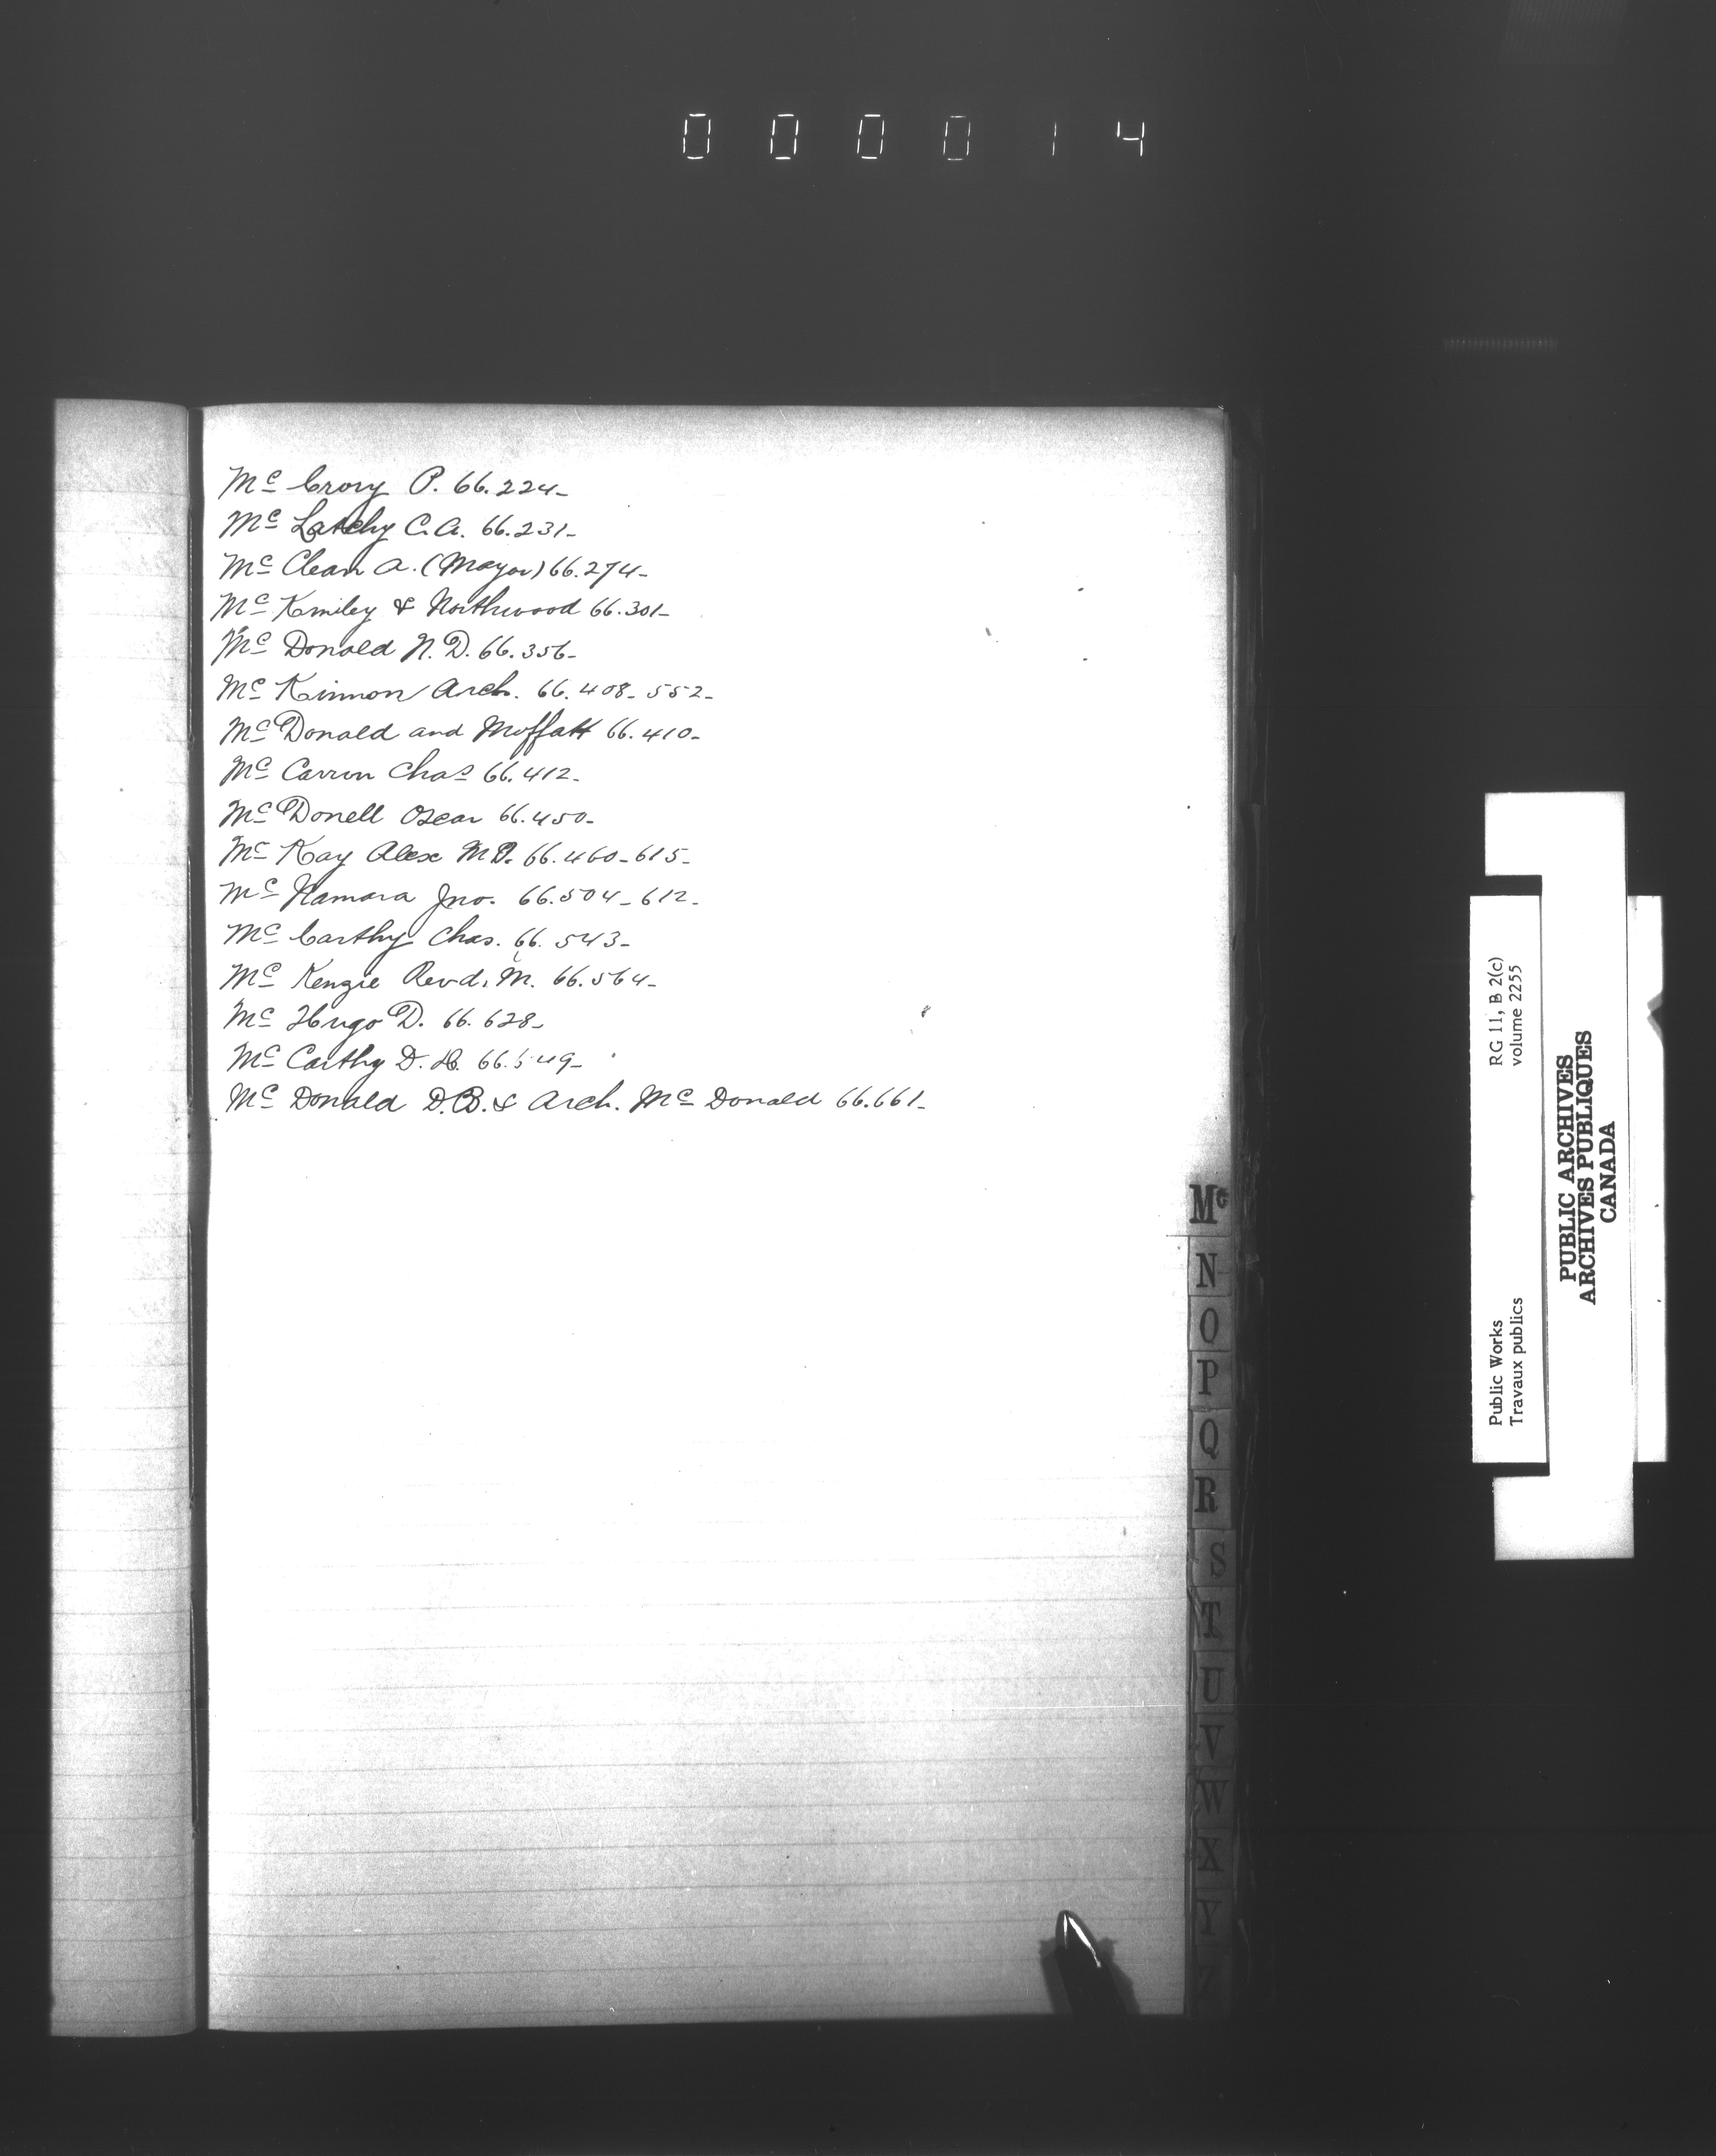 000014
Mc Crory P. 66.224-
Mc Latchy C.A. 66.231-
Mc Clean A. (Mayor) 66.274-
Mc Kmiley & Northwood 66.301-
Mc Donald N.D. 66.356-
Mc Kinnon Arch. 66.408-552-
Mc Donald and Moffatt 66.410-
Mc Carron Chas 66.412-
Mc Donell Oscar 66.450-
Mc Kay Alex M.D. 66.460-615-
Mc Namara Jno. 66.504-612-
Mc Carthy Chas. 66.543-
Mc Kenzie Revd. M. 66.564-
Mc Hugo D. 66.628-
Mc Carthy D. H.
Mc Donald D.B. & Arch. Mc Donald 66.661-
Mc
N
O
P
Q
R
S
T
U
V
W
X
Y
Z
Public Works RG 11, B 2(c)
Travaux publics volume 2255
PUBLIC ARCHIVES
ARCHIVES PUBLIQUES
CANADA